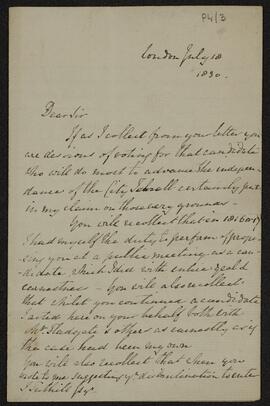 P4/3
London July 18
1830.
Dear Sir
If as I collect from your letter you
are desirous of voting for that candidate
who will do most to advance the indepen-
dance of the City I shall certainly put
in my claim on those very grounds.
You will recollect that in 1816 or 17
I had myself the duty to perform of propo-
sing you at a public meeting as a can-
didate which I did with entire & cold
earnestness - You will also recollect
that whilst you continued a candidate
I acted here on your behalf both with
Mr & others as earnestly as if
the case had been my own
You will also recollect that when you
wrote to me suggesting yr disinclination to enter
I